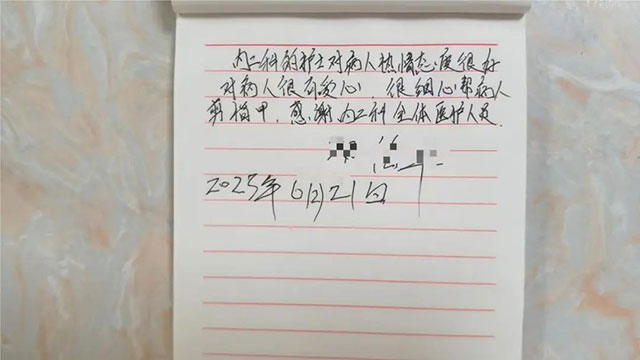 内二科的护士对病人热情态度很好
对病人很有爱心，很细心帮病人
剪指甲，感谢内二科全体医护人员。
2025年6月21日